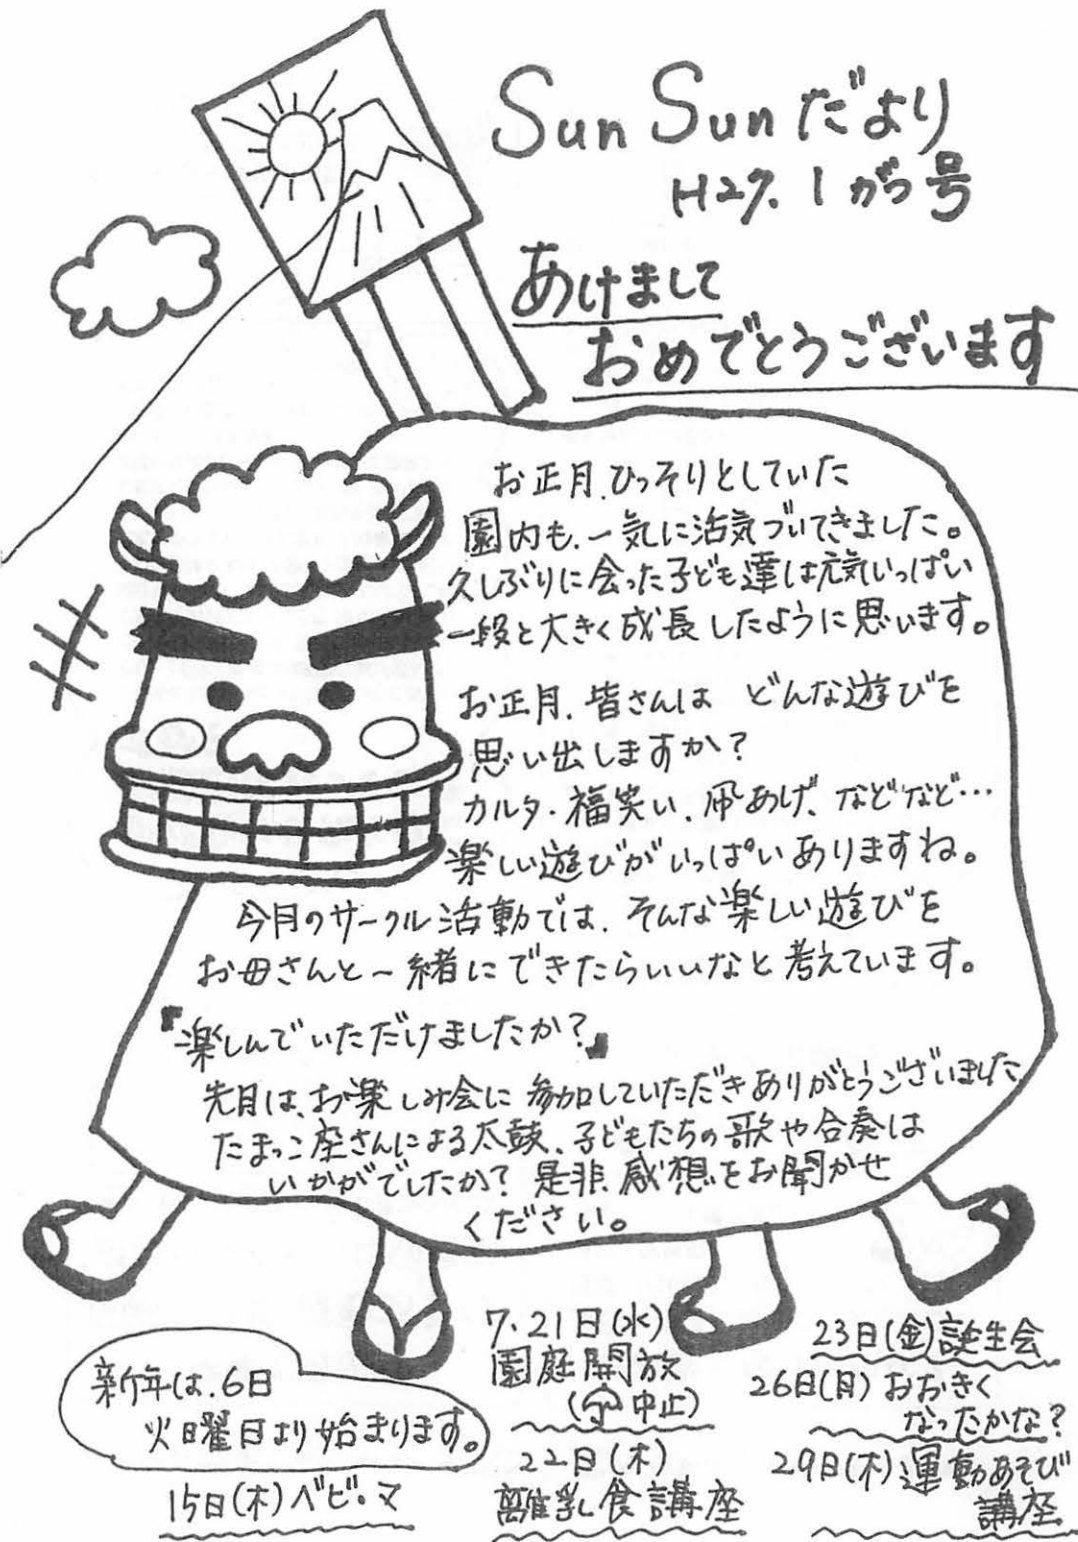 Sun Sun だより
H27. 1がつ号
あけまして
おめでとうございます
お正月、ひっそりとしていた
園内も、一気に活気づいてきました。
久しぶりに会った子ども達は元気いっぱい
一段と大きく成長したように思います。
お正月、皆さんは どんな遊びを
思い出しますか？
カルタ・福笑い、凧あげ、などなど…
楽しい遊びがいっぱいありますね。
今月のサークル活動では、そんな楽しい遊びを
お母さんと一緒にできたらいいなと考えています。
『楽しんでいただけましたか？』
先月は、お楽しみ会に参加していただきありがとうございました
たまっこ座さんによる太鼓、子どもたちの歌や合奏は
いかがでしたか？是非、感想をお聞かせ
ください。
新年は、6日
火曜日より始まります。
15日(木)ベビ・マ
7・21日(水)
園庭開放
(☂中止)
22日(木)
離乳食講座
23日(金)誕生会
26日(月)おおきく
なったかな？
29日(木)運動あそび
講座